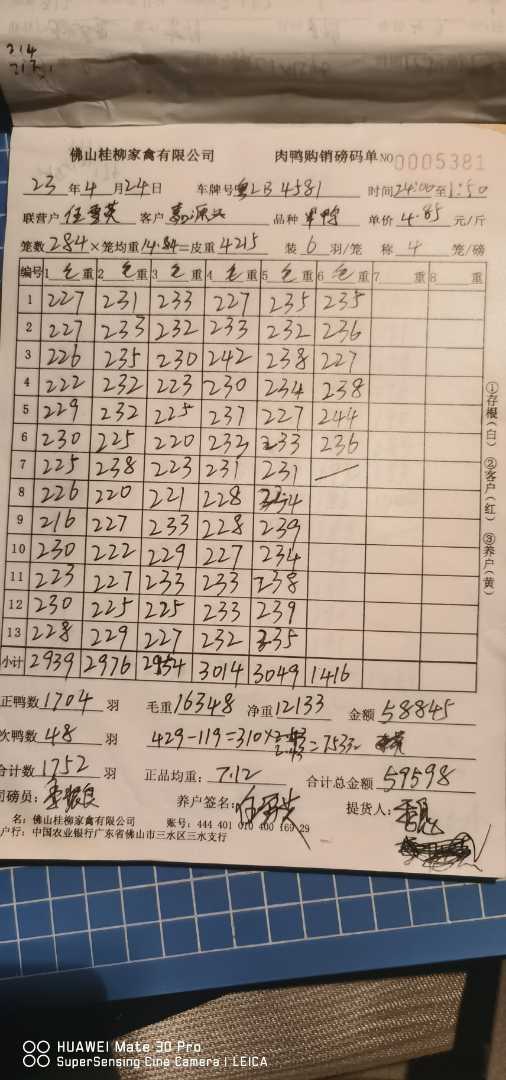 214
佛山桂柳家禽有限公司 肉鸭购销磅码单 NO 0005381
23 年 4 月 24 日 车牌号 粤LB4581 时间 24:00 至 1:50
联营户 任雪英 客户 品种 单价 4.85 元/斤
笼数 284 × 笼均重 14.84 = 皮重 4215 装 6 羽/笼 称 4 笼/磅
编号 1 毛 重 2 毛 重 3 毛 重 4 毛 重 5 毛 重 6 毛 重 7 重 8 重
1 227 231 233 227 235 235
2 227 233 232 233 232 236
3 226 235 230 242 238 227
4 222 232 223 230 234 238
5 229 232 225 237 227 244
6 230 225 220 232 233 236
7 225 238 223 231 231 —
8 226 220 221 228 234
9 216 227 233 228 239
10 230 222 229 227 234
11 223 227 233 233 238
12 230 225 225 233 239
13 228 229 227 232 235
小计 2939 2976 2954 3014 3049 1416
正鸭数 1704 羽 毛重 16348 净重 12133 金额 58845
次鸭数 48 羽 429-119=310×2.43=753
合计数 1752 羽 正品均重: 7.12 合计总金额 59598
司磅员: 养户签名: 提货人:
名: 佛山桂柳家禽有限公司 账号: 444 401 010 400 169 29
户行: 中国农业银行广东省佛山市三水区三水支行
①存根(白) ②客户(红) ③养户(黄)
HUAWEI Mate 30 Pro
SuperSensing Cine Camera | LEICA